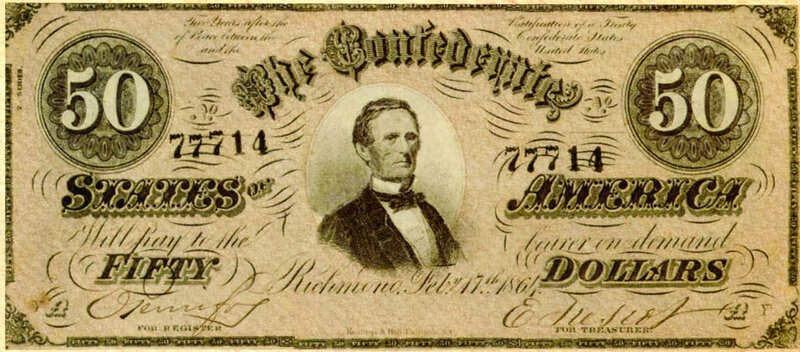 Two Years after the Ratification of a Treaty
of Peace between the Confederate States
and the United States
The Confederate
2 SERIES.
50
50
No
77714
77714
STATES OF
AMERICA
Will pay to the
bearer on demand
FIFTY
Richmond, Feby 17th 1864.
DOLLARS
FOR REGISTER
FOR TREASURER
50 50 50 50